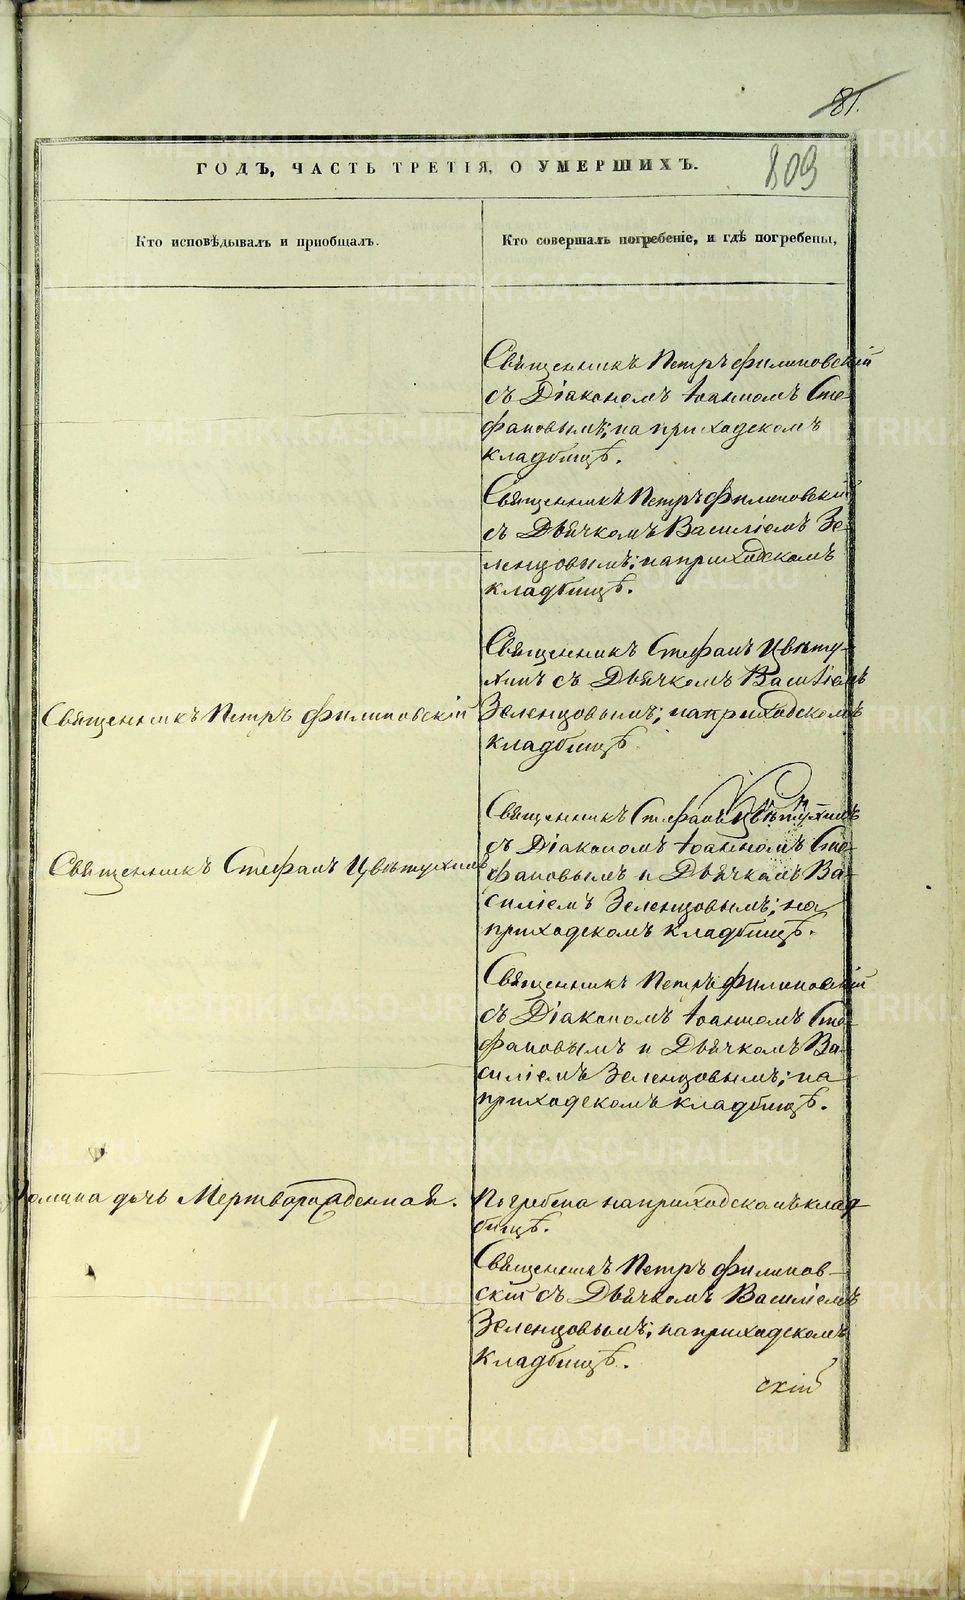 81.
809
ГОДЪ, ЧАСТЬ ТРЕТІЯ, О УМЕРШИХЪ.
Кто исповѣдывалъ и пріобщалъ.
Кто совершалъ погребеніе, и гдѣ погребены,
Священникъ Петръ Филиповскій
съ Діакономъ Іоанномъ Сте-
фановымъ; на приходскомъ
кладбищѣ.
Священникъ Петръ Филиповскій
съ Дьячкомъ Василіемъ Зе-
ленцовымъ; на приходскомъ
кладбищѣ.
Священникъ Петръ Филиповскій
Священникъ Стефанъ Цвѣту-
хинъ съ Дьячкомъ Василіемъ
Зеленцовымъ; на приходскомъ
кладбищѣ
Священникъ Стефанъ Цвѣтухинъ
Священникъ Стефанъ Цвѣтухинъ
съ Діакономъ Іоанномъ Сте-
фановымъ и Дьячкомъ Ва-
силіемъ Зеленцовымъ; на
приходскомъ кладбищѣ.
Священникъ Петръ Филиповскій
съ Діакономъ Іоанномъ Сте-
фановымъ и Дьячкомъ Ва-
силіемъ Зеленцовымъ; на
приходскомъ кладбищѣ.
дочь Мертворожденная.
Погребена на приходскомъ клад-
бищѣ.
Священникъ Петръ Филипов-
скій съ Дьячкомъ Василіемъ
Зеленцовымъ; на приходскомъ
кладбищѣ.
скій
METRIKI.GASO-URAL.RU